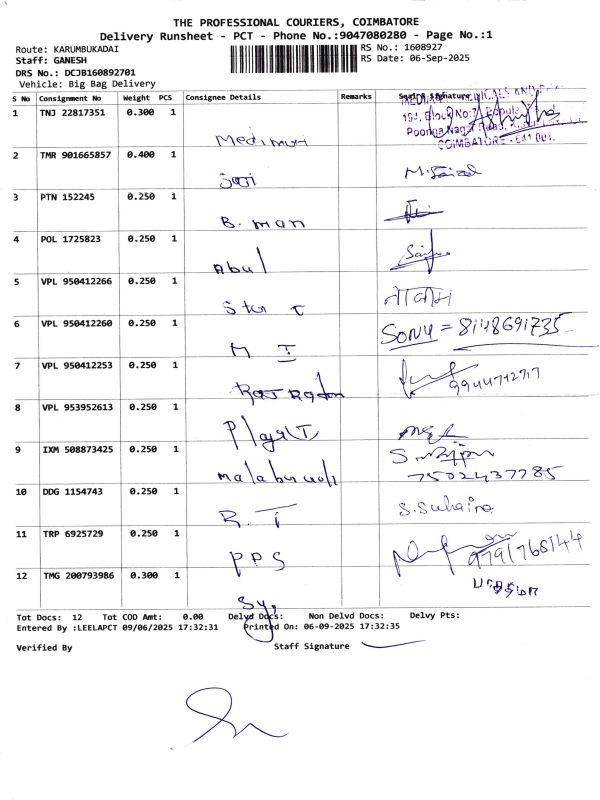 THE PROFESSIONAL COURIERS, COIMBATORE
Delivery Runsheet - PCT - Phone No.:9047080280 - Page No.:1
Route: KARUMBUKADAI RS No.: 1608927
Staff: GANESH RS Date: 06-Sep-2025
DRS No.: DCJB160892701
Vehicle: Big Bag Delivery
S No Consignment No Weight PCS Consignee Details Remarks Signature
1 TNJ 22817351 0.300 1
194, Block No:7
Poonga Nagar Road,
COIMBATORE - 641 001.
2 TMR 901665857 0.400 1
3 PTN 152245 0.250 1 B. man
4 POL 1725823 0.250 1 Abul
5 VPL 950412266 0.250 1 Star T
6 VPL 950412260 0.250 1 M I SONY = 8148691735
7 VPL 950412253 0.250 1 9944712717
8 VPL 953952613 0.250 1
9 IXM 508873425 0.250 1 7502437785
10 DDG 1154743 0.250 1 R. T S. Suhaina
11 TRP 6925729 0.250 1 PPS 9791768144
12 TMG 200793986 0.300 1
Tot Docs: 12 Tot COD Amt: 0.00 Delvd Docs: Non Delvd Docs: Delvy Pts:
Entered By :LEELAPCT 09/06/2025 17:32:31 Printed On: 06-09-2025 17:32:35
Verified By Staff Signature